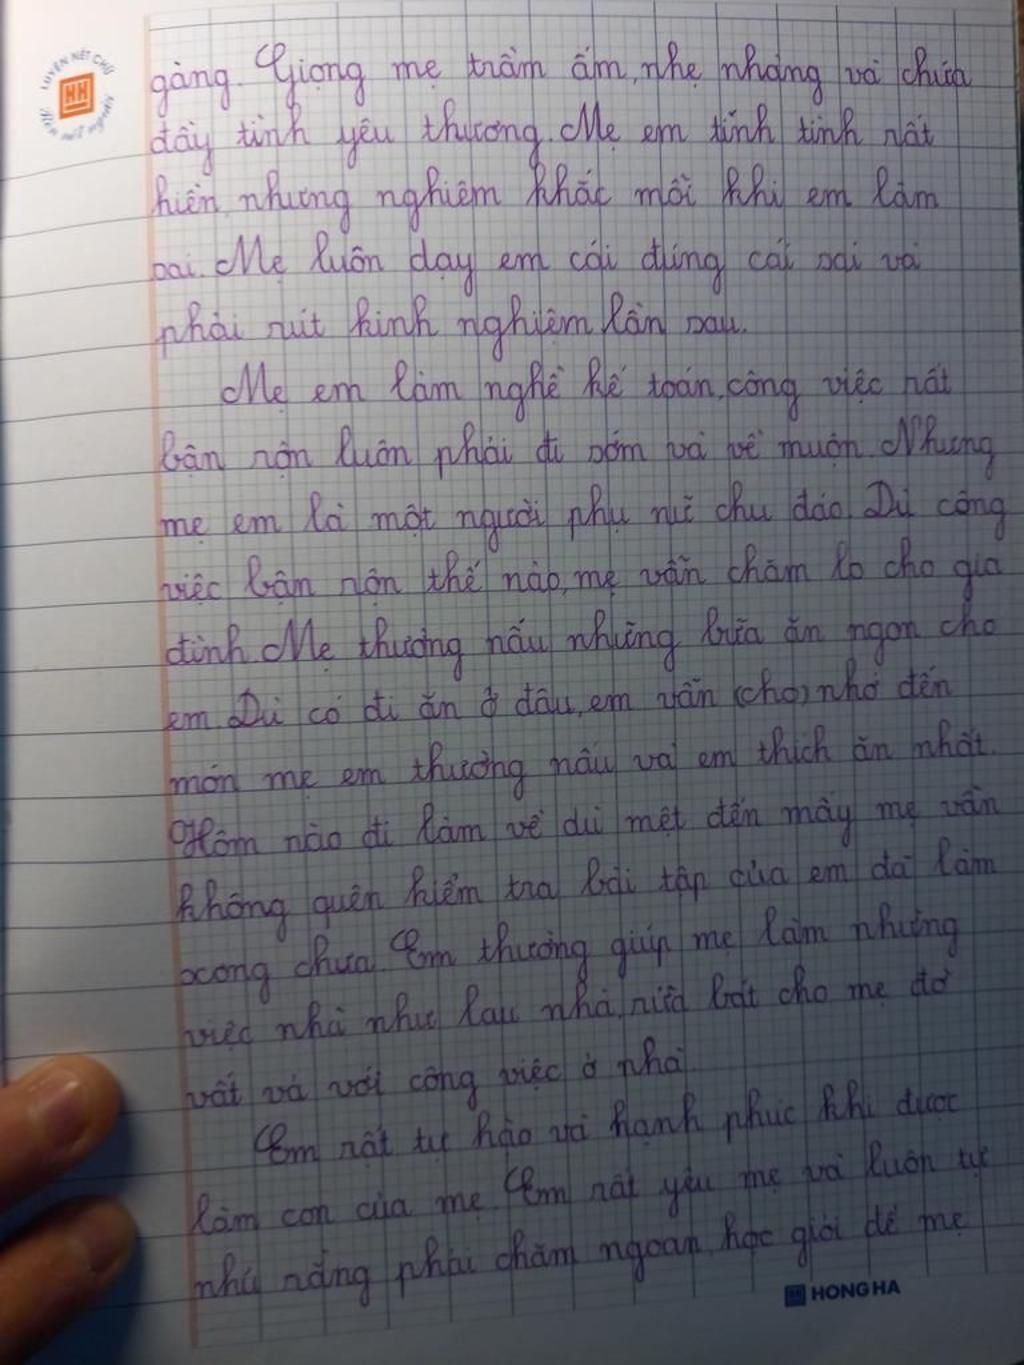 LUYỆN NÉT CHỮ
gàng. Giọng mẹ trầm ấm, nhẹ nhàng và chứa
đầy tình yêu thương. Mẹ em tính tình rất
hiền, nhưng nghiêm khắc mỗi khi em làm
sai. Mẹ luôn dạy em cái đúng cái sai và
phải rút kinh nghiệm lần sau.
Mẹ em làm nghề kế toán, công việc rất
bận rộn luôn phải đi sớm và về muộn. Nhưng
mẹ em là một người phụ nữ chu đáo. Dù công
việc bận rộn thế nào, mẹ vẫn chăm lo cho gia
đình. Mẹ thường nấu những bữa ăn ngon cho
em. Dù có đi ăn ở đâu, em vẫn (cho) nhớ đến
món mẹ em thường nấu và em thích ăn nhất.
Hôm nào đi làm về dù mệt đến mấy mẹ vẫn
không quên kiểm tra bài tập của em đã làm
xong chưa. Em thường giúp mẹ làm những
việc nhà như lau nhà, rửa bát cho mẹ đỡ
vất vả với công việc ở nhà.
Em rất tự hào và hạnh phúc khi được
làm con của mẹ. Em rất yêu mẹ và luôn tự
nhủ rằng phải chăm ngoan, học giỏi để mẹ
HONG HA